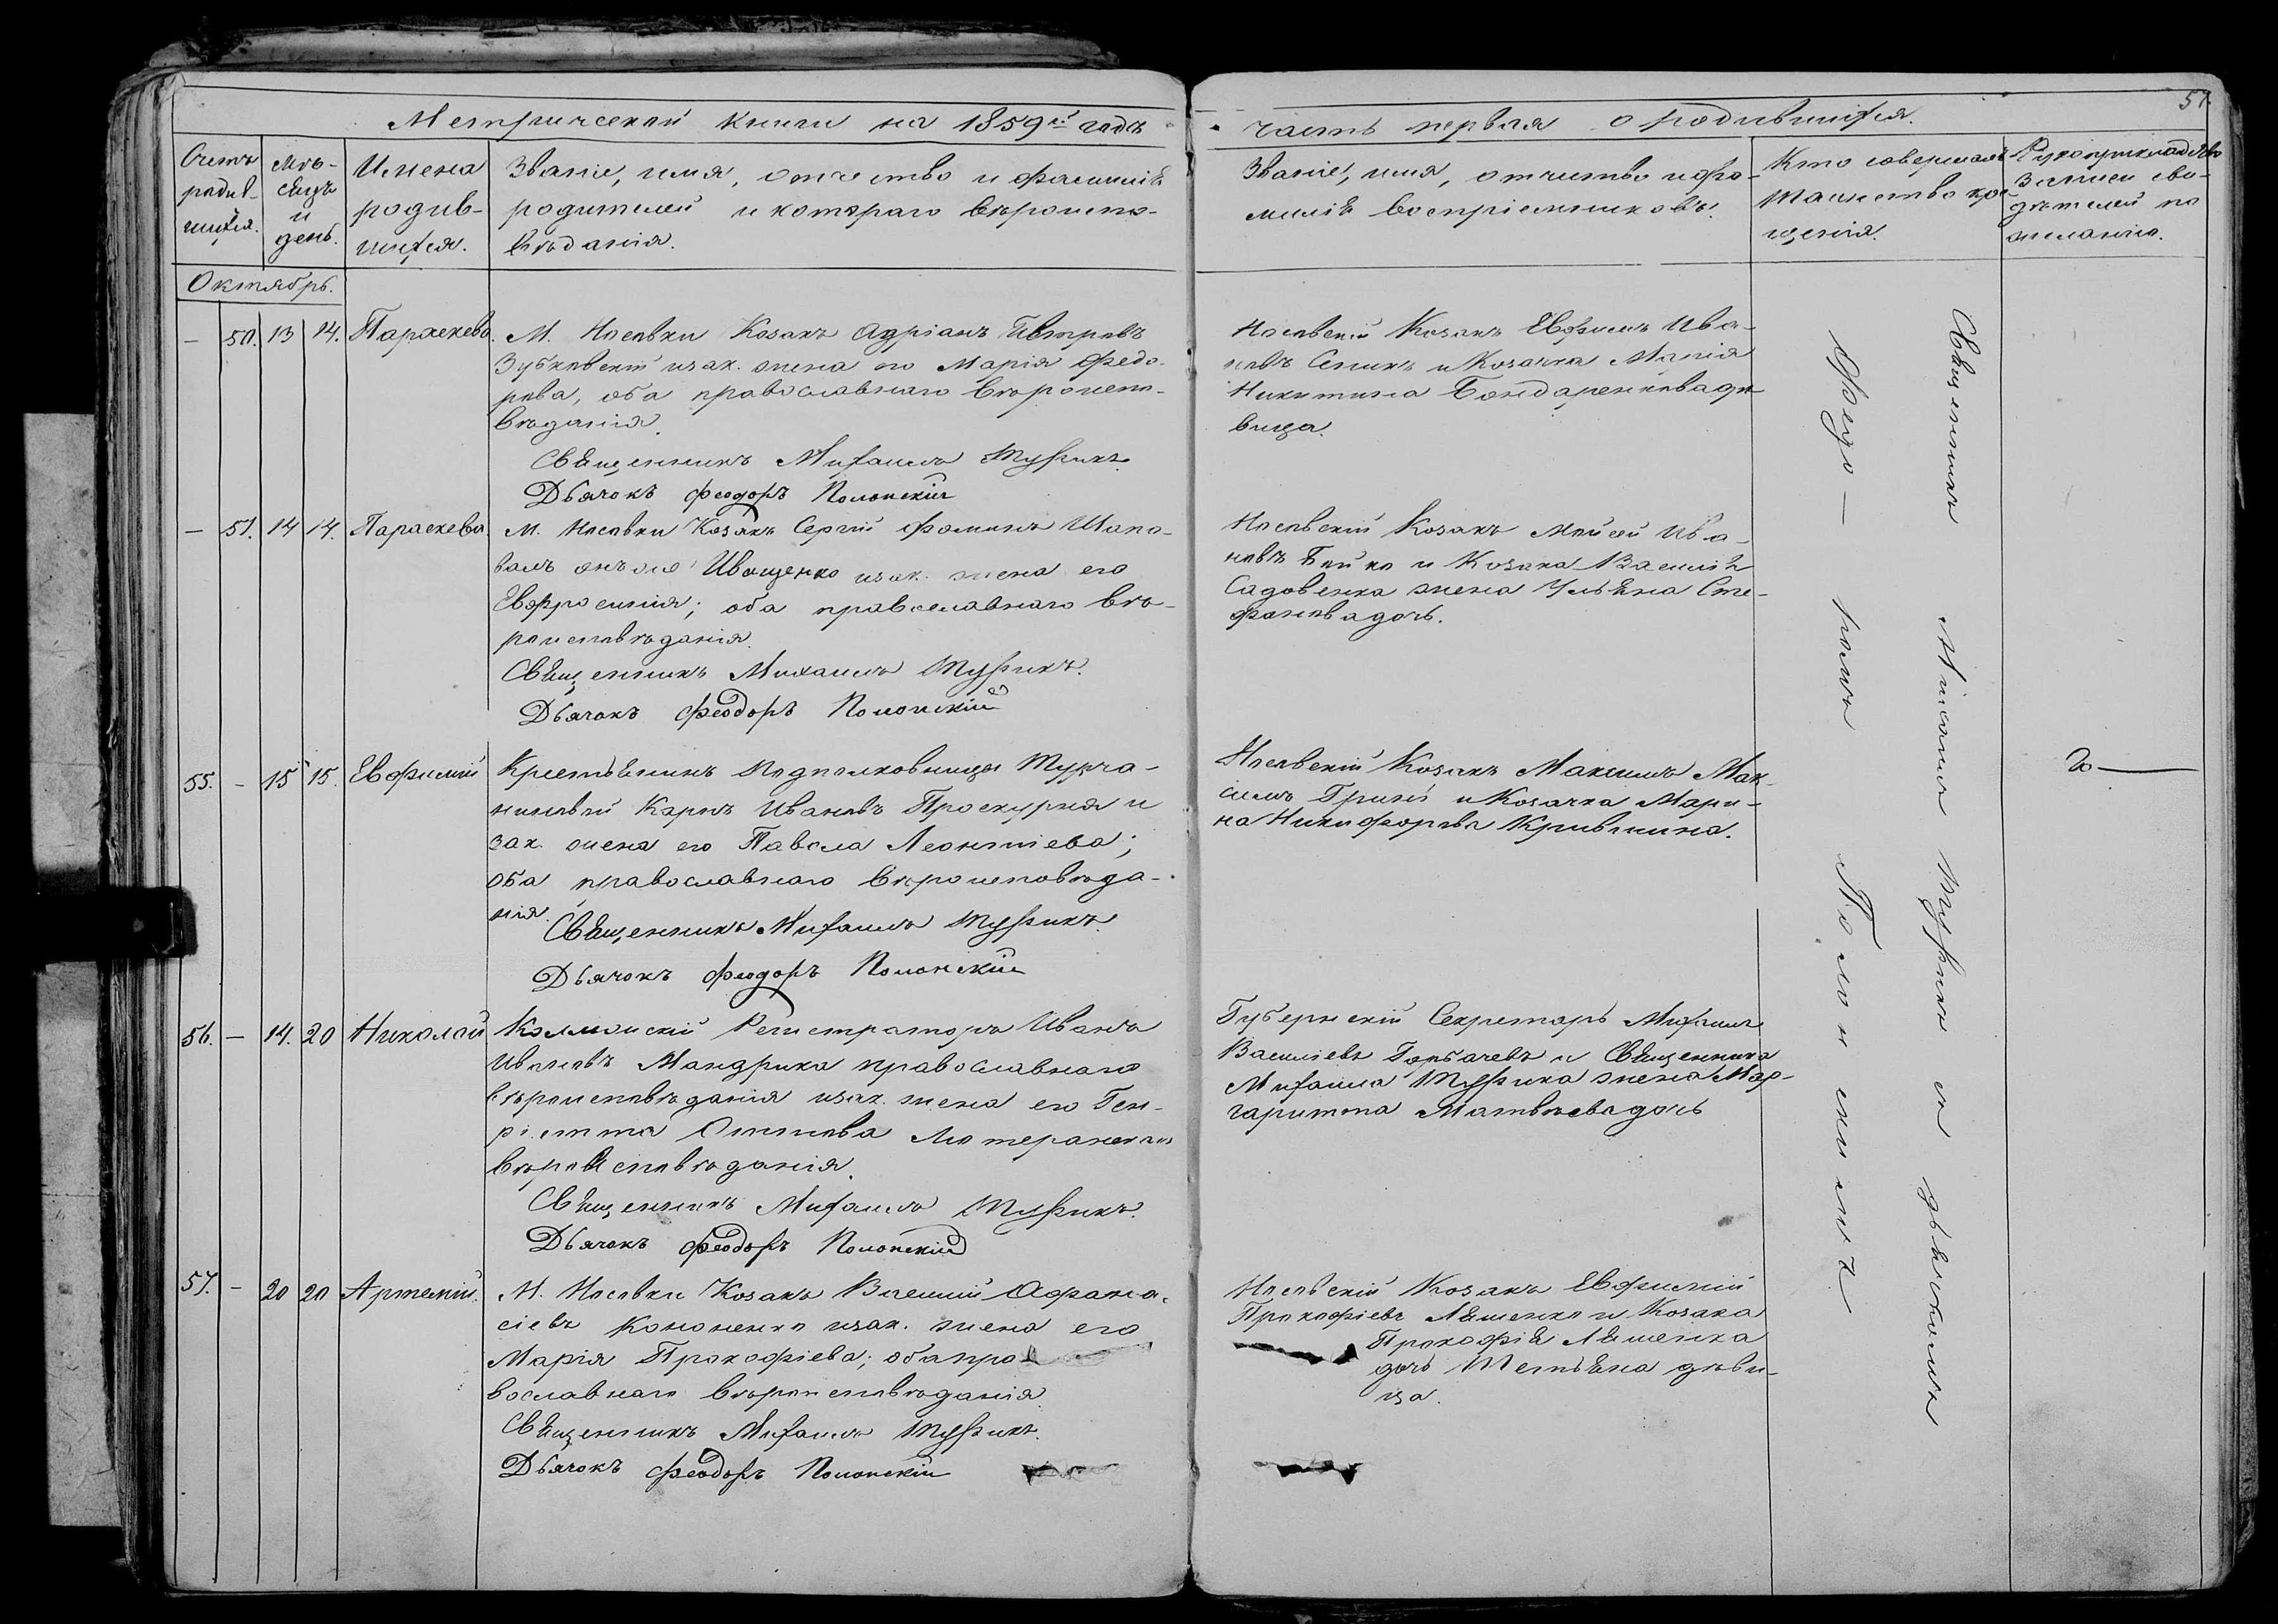 Метрической книги на 1859й годъ
часть первая о родившихся.
51
Счетъ
родив-
шихся.
Мѣ-
сяцъ
и
день.
Имена
родив-
шихся.
Званіе, имя, отчество и фамилія
родителей и котораго вѣроиспо-
вѣданія.
Званіе, имя, отчество и фа-
милія воспріемниковъ.
Кто совершалъ
таинство кре-
щенія.
Рукоприкладство
записи сви-
дѣтелей по
желанію.
Октябрь.
— 50. 13 14. Параскева.
М. Носовки Козакъ Адріанъ Петровъ
Зубковскій изак. жена его Марія Федо-
рова, оба православнаго вѣроиспо-
вѣданія.
Священникъ Михаилъ Туфикъ.
Дьячокъ Феодоръ Полонскій
Носовскій Козакъ Евфимъ Ива-
новъ Сепикъ и Козачка Марія
Никитина Бондаренкова дѣ-
вица.
— 51. 14 14. Параскева.
М. Носовки Козакъ Сергій Фоминъ Шапо-
валъ онъ же Иващенко изак. жена его
Евфросинія; оба православнаго вѣ-
роисповѣданія.
Священникъ Михаилъ Туфикъ.
Дьячокъ Феодоръ Полонскій
Носовскій Козакъ Мойсей Ива-
новъ Бойко и Козака Василія
Садовенка жена Ульяна Сте-
фанова дочь.
55. — 15 15. Евфимій
Крестьянинъ Подполковницы Турча-
ниновой Карпъ Ивановъ Проскурня и
зак. жена его Павла Леонтіева;
оба православнаго вѣроисповѣда-
нія.
Священникъ Михаилъ Туфикъ.
Дьячокъ Феодоръ Полонскій
Носовскій Козакъ Максимъ Мак-
симъ Гринь и Козачка Мари-
на Никифорова Кривошина.
56. — 14. 20 Николай
Коллежскій Регистраторъ Иванъ
Ивановъ Мандрика православнаго
вѣроисповѣданія изак. жена его Ген-
ріетта Оттова Лютеранскаго
вѣроисповѣданія.
Священникъ Михаилъ Туфикъ.
Дьячокъ Феодоръ Полонскій
Губернскій Секретарь Михаилъ
Васильевъ Горбачевъ и Священника
Михаила Туфика жена Мар-
гаритта Матвѣева дочь
57. — 20 20 Артемій.
М. Носовки Козакъ Василій Афана-
сіевъ Кононенко изак. жена его
Марія Прокофіева; оба пра-
вославнаго вѣроисповѣданія.
Священникъ Михаилъ Туфикъ.
Дьячокъ Феодоръ Полонскій
Носовскій Козакъ Евфимій
Прокофіевъ Ляшенко и Козака
Прокофія Ляшенка
дочь Тетьяна дѣви-
ца.
Священникъ Михаилъ Туфикъ съ дьячкомъ
Полонскимъ.